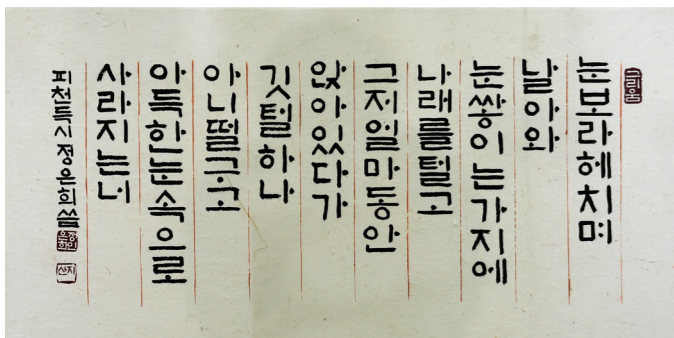 그리움
눈보라헤치며
날아와
눈쌓이는가지에
나래를털고
그저얼마동안
앉아있다가
깃털하나
아니떨구고
아득한눈속으로
사라지는너
피천득시 정은희씀